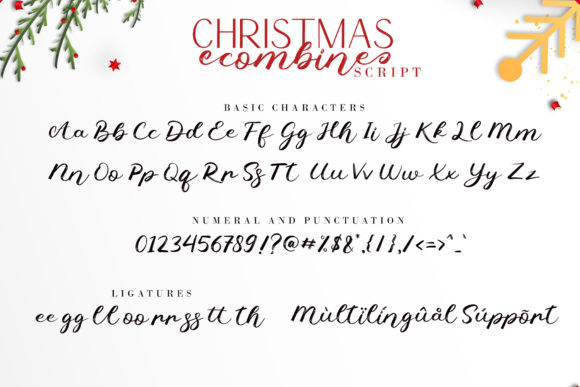 CHRISTMAS
ecombines
SCRIPT
BASIC CHARACTERS
Aa Bb Cc Dd Ee Ff Gg Hh Ii Jj Kk Ll Mm
Nn Oo Pp Qq Rr Ss Tt Uu Vv Ww Xx Yy Zz
NUMERAL AND PUNCTUATION
0123456789!?@#%$&*.{/},/<=>^_`
LIGATURES
ee gg ll oo rr ss tt th
Mùltïlíngûål Súppõrt